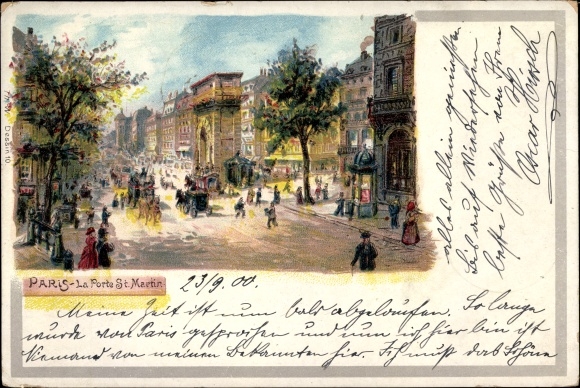 PARIS - La Porte St. Martin
Dessin 10
23/9.00.
Meine Zeit ist nun bald abgelaufen. So lange
wurde von Paris gesprochen und nun ich hier bin ist
Niemand von meinen Bekannten hier. Ich muß das Schöne
alles allein genießen.
Leb auf Wiedersehen
beste Grüße
Oscar